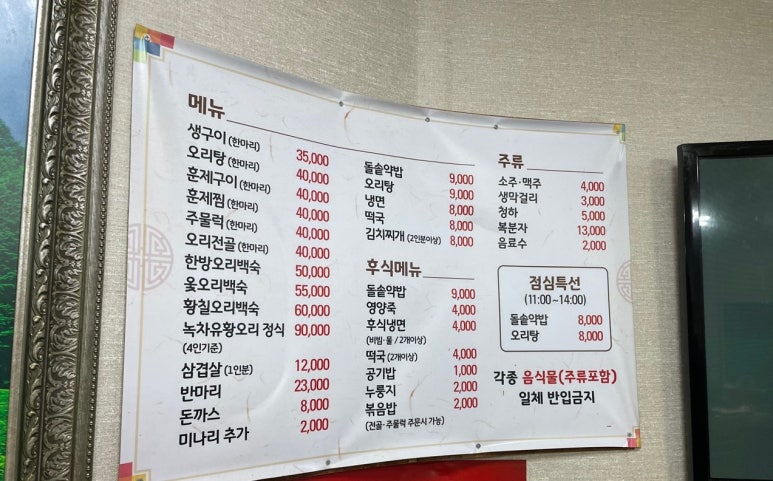 메뉴
생구이 (한마리) 35,000
오리탕 (한마리) 40,000
훈제구이 (한마리) 40,000
훈제찜 (한마리) 40,000
주물럭 (한마리) 40,000
오리전골 (한마리) 40,000
한방오리백숙 50,000
옻오리백숙 55,000
황칠오리백숙 60,000
녹차유황오리 정식 90,000
(4인기준)
삼겹살 (1인분) 12,000
반마리 23,000
돈까스 8,000
미나리 추가 2,000
돌솥약밥 9,000
오리탕 9,000
냉면 8,000
떡국 8,000
김치찌개 (2인분이상) 8,000
후식메뉴
돌솥약밥 9,000
영양죽 4,000
후식냉면 4,000
(비빔·물 / 2개이상)
떡국 (2개이상) 4,000
공기밥 1,000
누룽지 2,000
볶음밥 2,000
(전골·주물럭 주문시 가능)
주류
소주·맥주 4,000
생막걸리 3,000
청하 5,000
복분자 13,000
음료수 2,000
점심특선
(11:00~14:00)
돌솥약밥 8,000
오리탕 8,000
각종 음식물(주류포함)
일체 반입금지